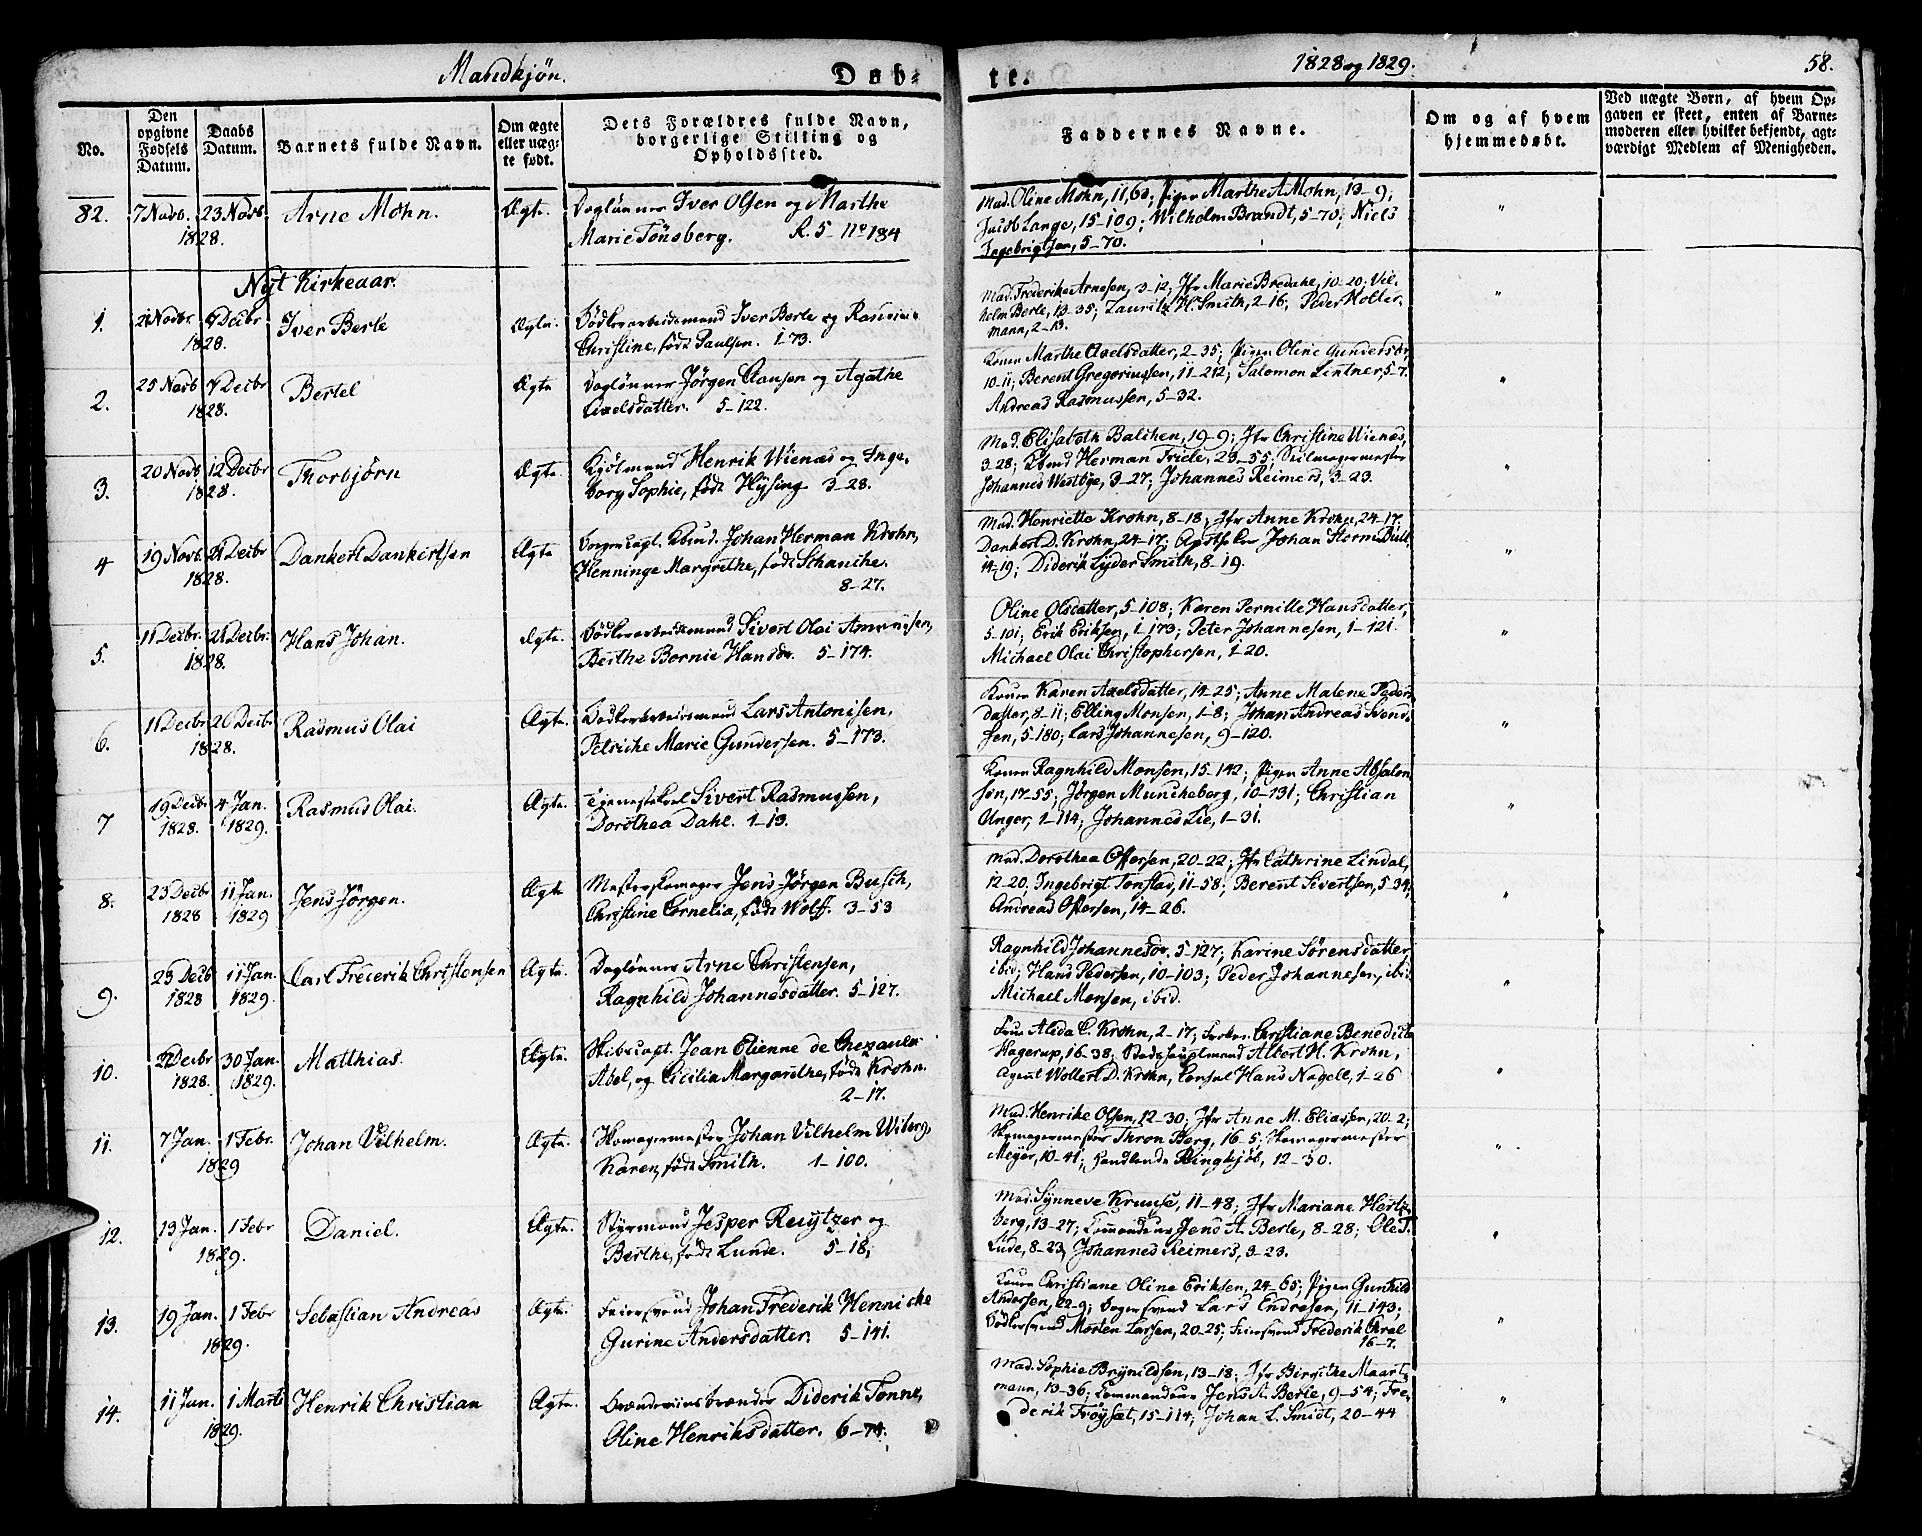 Mandkjøn.
Døb-
te.
1828 og 1829.
58.
No.
Den opgivne Fødsels Datum.
Daabs Datum.
Barnets fulde Navn.
Om ægte eller uæg-te født.
Dets Forældres fulde Navn, borgerlige Stilling og Opholdssted.
Faddernes Navne.
Om og af hvem hjemmedøbt.
Ved uægte Børn, af hvem Op-gaven er skeet, enten af Barne-moderen eller hvilket bekjendt, agt-værdigt Medlem af Menigheden.
82. 7 Novb. 23 Novb. 1828. Arne Mohn. Ægte. Daglønner Iver Olsen og Marthe
Marie Tønsberg. R. 5 No 184
Mad. Oline Mohn, 11,60; Pigen Marthe A Mohn, 13-9;
Jacob Lange, 15-109; Wilhelm Brandt, 5-70; Niels
Ingebrigtsen, 5-70.
Nyt Kirkeaar.
1. 21 Novbr. Decbr 1828. Iver Berle Ægte. Bødkerarbeidsmand Iver Berle og
Christine, født Paulsen. 1-73.
Mad. Frederike Arnesen, 3-12; Jfr Marie Bredahe, 10-20; Vil-
helm Berle, 13-35; Lauritz H. Smith, 2-16; Peder Kolter-
mann, 2-13.
2. 25 Novb. 7 Decbr 1828. Bertel Ægte Daglønner Jørgen Clausen og Agathe
Axelsdatter. 5-122.
Konen Marthe Axelsdatter, 2-35; Pigen Oline Gundersdr,
10-11; Berent Gregoriussen, 11-212; Salomon Lintner, 5-7.
Andreas Rasmussen, 5-32.
3. 20 Novb. 12 Decbr 1828. Thorbjørn Ægte. Kjøbmand Henrik Wienæs og Inge-
borg Sophie, født Hysing 3-28.
Mad. Elisabeth Balchen, 19-9; Jfr Christine Wienæs,
3-28; Kbmd Herman Friele, 23-55; Seilmagermester
Johannes Westbye, 3-27; Johannes Reimers, 3-23.
4 19 Novb. 21 Decbr 1828. Dankert Dankertsen Ægte Borgercapt. Kbmd. Johan Herman Krohn,
Henninge Margrethe, født Schanche.
8-27.
Mad. Henriette Krohn, 8-18; Jfr Anne Krohn, 24-17.
Dankert D. Krohn, 24-17; Johan Storm Bull
14-19; Diderik Lyder Smith, 8-19.
5. 11 Decbr. 21 Decbr. 1828. Hans Johan. Ægte. Bødkerarbeidsmand Sivert Olai Amundsen,
Berthe Bornie Hansdr. 5-174.
Oline Olsdatter, 5-108; Karen Pernille Hansdatter,
5-101; Erik Eriksen, 1-173; Peter Johannesen, 1-121.
Michael Olai Christophersen, 1-20.
6. 11 Decbr. 26 Decbr 1828. Rasmus Olai Ægte. Bødkerarbeidsmand Lars Antonisen,
Petriche Marie Gundersen. 5-173.
Konen Karen Axelsdatter, 14-25; Anne Malene Peders-
datter, 8-11; Elling Monsen, 1-8; Johan Andreas Svend-
sen, 5-180; Lars Johannesen, 9-120.
7 19 Decbr 1828. 4 Jan. 1829. Rasmus Olai. Ægte. Tjenestekarl Sivert Rasmussen,
Dorothea Dahl. 1-13.
Konen Ragnhild Monsen, 15-142; Pigen Anne Absalon-
sen, 17-55; Jørgen Muncheberg, 10-131; Christian
Unger, 1-114; Johannes Lie, 1-31.
8. 23 Decbr 1828 11 Jan. 1829 Jens Jørgen. Ægte Mesterskomager Jens Jørgen Busch,
Christine Cornelia, født Wolff. 3-53
Mad. Dorothea Oftersen, 20-22; Jfr Cathrine Lindal,
12-20; Ingebrigt Tonstad, 11-58; Berent Sivertsen, 5-34;
Andreas Oftersen, 14-26.
9. 23 Decb 1828 11 Jan. 1829. Carl Frederik Christensen Ægte. Daglønner Arne Christensen,
Ragnhild Johannesdatter. 5-127.
Ragnhild Johannesdr. 5-127; Karine Sørensdatter
ibid; Hans Pedersen, 10-103; Peder Johannesen, ibid.
Michael Monsen, ibid.
10. 22 Decbr 1828. 30 Jan. 1829. Matthias. Ægte. Skibscapt. Jean Etienne de Chezaulx
Abel, og Cicilia Margarethe, født Krohn.
2-17.
Frue Alida C. Krohn, 2-17; Frøken Christiane Benedicte
Hagerup, 16-38; Stadshauptmand Albert H. Krohn,
Agent Wollert D. Krohn, Consul Hans Nagell, 1-26
11. 7 Jan. 1 Febr. 1829 Johan Vilhelm. Ægte. Skomagermester Johan Vilhelm Wiberg,
Karen, født Smith. 1-100.
Mad. Henrike Olsen, 12-30; Jfr Anne M. Eliassen, 20-2;
Skomagermester Thron Berg, 16-5; Skomagermester
Meyer, 10-41; Handlende Ringkjøb, 12-30.
12. 13 Jan. 1 Febr 1829. Daniel. Ægte. Styrmand Jesper Reutzer og
Berthe, født Lunde. 5-18,
Mad. Synneve Kruuse, 11-48; Jfr Mariane Hertz-
berg, 13-27; Commandeur Jens A. Berle, 8-28; Ole T.
Lude, 8-23; Johannes Reimers, 3-23.
13. 19 Jan. 1 Febr 1829. Sebastian Andreas Ægte. Feiersvend Johan Frederik Hennicke
Gurine Andersdatter. 5-141.
Konen Christiane Oline Eriksen, 24-65; Pigen Gunhild
Andersen, 22-9; Bagersvend Lars Endresen, 11-143;
Bødkersvend Morten Larsen, 20-25; Feiersvend Frederik
16-7.
14. 11 Jan. 1 Marts 1829. Henrik Christian Ægte. Brændeviinsbrænder Diderik Tønne,
Oline Henriksdatter. 6-74.
Mad. Sophie Brynildsen, 13-18; Jfr Birgithe Maart-
mann, 13-36; Commandeur Jens A. Berle, 9-54; Fre-
derik Frøysæt, 15-114; Johan L. Smidt, 20-44